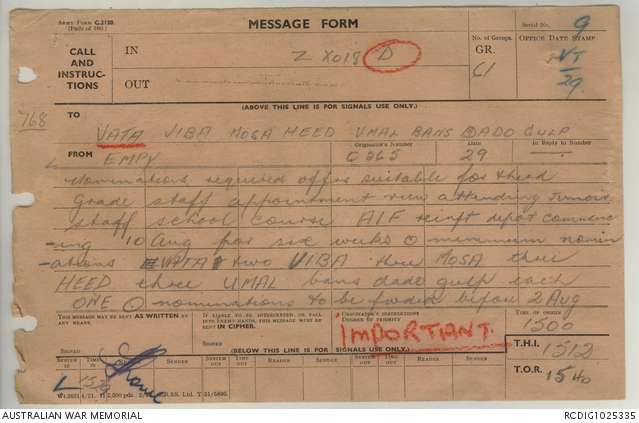 ARMY FORM C.2128.
(Pads of 100.)
MESSAGE FORM
Serial No. 9
CALL
AND
INSTRUC-
TIONS
IN
Z X018 D
No. of Groups.
GR.
61
OFFICE DATE STAMP
VT
29
OUT
(ABOVE THIS LINE IS FOR SIGNALS USE ONLY.)
768
TO
VATA VIBA MOSA HEED UMAL BANS DADO GULP
FROM
EMPY
Originator's Number
C 365
Date
29
In Reply to Number
Nominations required offrs suitable for third
grade staff appointment view attending junior
staff school course AIF reinft depot commenc
-ing 10 Aug for six weeks O minimum nomin
-ations VATA two VIBA three MOSA three
HEED three UMAL bans dado gulp each
ONE O nominations to be fwded before 2 Aug
THIS MESSAGE MAY BE SENT AS WRITTEN BY
ANY MEANS.
IF LIABLE TO BE INTERCEPTED OR FALL
INTO ENEMY HANDS, THIS MESSAGE MUST BE
SENT IN CIPHER.
ORIGINATOR'S INSTRUCTIONS
DEGREE OF PRIORITY
IMPORTANT.
TIME OF ORIGIN
1500
SIGNED
SIGNED
(BELOW THIS LINE IS FOR SIGNALS USE ONLY.)
T.H.I.
1512
SYSTEM
IN
TIME
IN
SENDER
SYSTEM
OUT
TIME
OUT
READER
SENDER
SYSTEM
OUT
TIME
OUT
READER
SENDER
T.O.R.
1540
L
AUSTRALIAN WAR MEMORIAL
RCDIG1025335